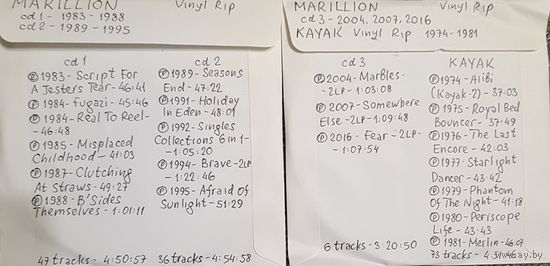 MARILLION Vinyl Rip
cd 1 - 1983 - 1988
cd 2 - 1989 - 1995
cd 1
Ⓟ 1983 - Script For
A Jesters Tear - 46:41
Ⓟ 1984 - Fugazi - 45:46
Ⓟ 1984 - Real To Reel -
- 46:48
Ⓟ 1985 - Misplaced
Childhood - 41:03
Ⓟ 1987 - Clutching
At Straws - 49:27
Ⓟ 1988 - B'Sides
Themselves - 1:01:11
47 tracks - 4:50:57
cd 2
Ⓟ 1989 - Seasons
End - 47:22
Ⓟ 1991 - Holiday
In Eden - 48:01
Ⓟ 1992 - Singles
Collections 6 in 1 -
- 1:05:20
Ⓟ 1994 - Brave - 2LP
- 1:22:46
Ⓟ 1995 - Afraid Of
Sunlight - 51:29
36 tracks - 4:54:58
MARILLION Vinyl Rip
cd 3 - 2004, 2007, 2016
KAYAK Vinyl Rip 1974 - 1981
cd 3
Ⓟ 2004 - Marbles -
- 2LP - 1:03:08
Ⓟ 2007 - Somewhere
Else - 2LP - 1:09:48
Ⓟ 2016 - Fear - 2LP -
- 1:07:54
6 tracks - 3:20:50
KAYAK
Ⓟ 1974 - Alibi
(Kayak-2) - 37:03
Ⓟ 1975 - Royal Bed
Bouncer - 37:49
Ⓟ 1976 - The Last
Encore - 42:03
Ⓟ 1977 - Starlight
Dancer - 43:42
Ⓟ 1979 - Phantom
Of The Night - 41:18
Ⓟ 1980 - Periscope
Life - 43:43
Ⓟ 1981 - Merlin - 46:07
73 tracks -